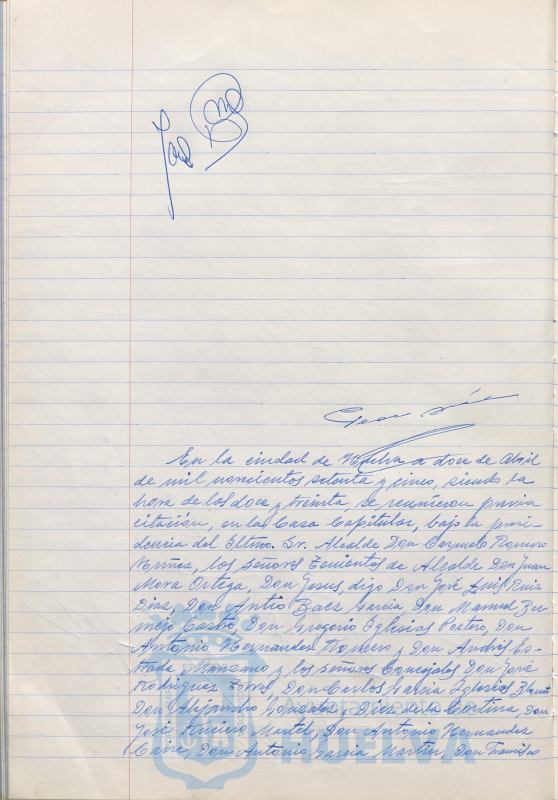 En la ciudad de Huelva a doce de Abril
de mil novecientos setenta y cinco, siendo la
hora de las doce y treinta se reunieron previa
citación, en la Casa Capitular, bajo la presi-
dencia del Iltmo. Sr. Alcalde Don Carmelo Romero
Núñez, los señores Tenientes de Alcalde Don Juan
Mora Ortega, Don Jesus, digo Don José Luis Ruiz
Diaz, Don Antio Baez Garcia, Don Manuel Ber-
mejo Castro, Don Gregorio Iglesias Pastro, Don
Antonio Hernandez Romero y Don Andrés Es-
trada Manzano y los señores Concejales Don José
Rodriguez Torres, Don Carlos Garcia Iglesias
Don Alejandro Gonzalez y Diez de la Cortina, Don
José Martel, Don Antonio Hernandez
Don Antonio Garcia Martin, Don Francisco
HUELVA